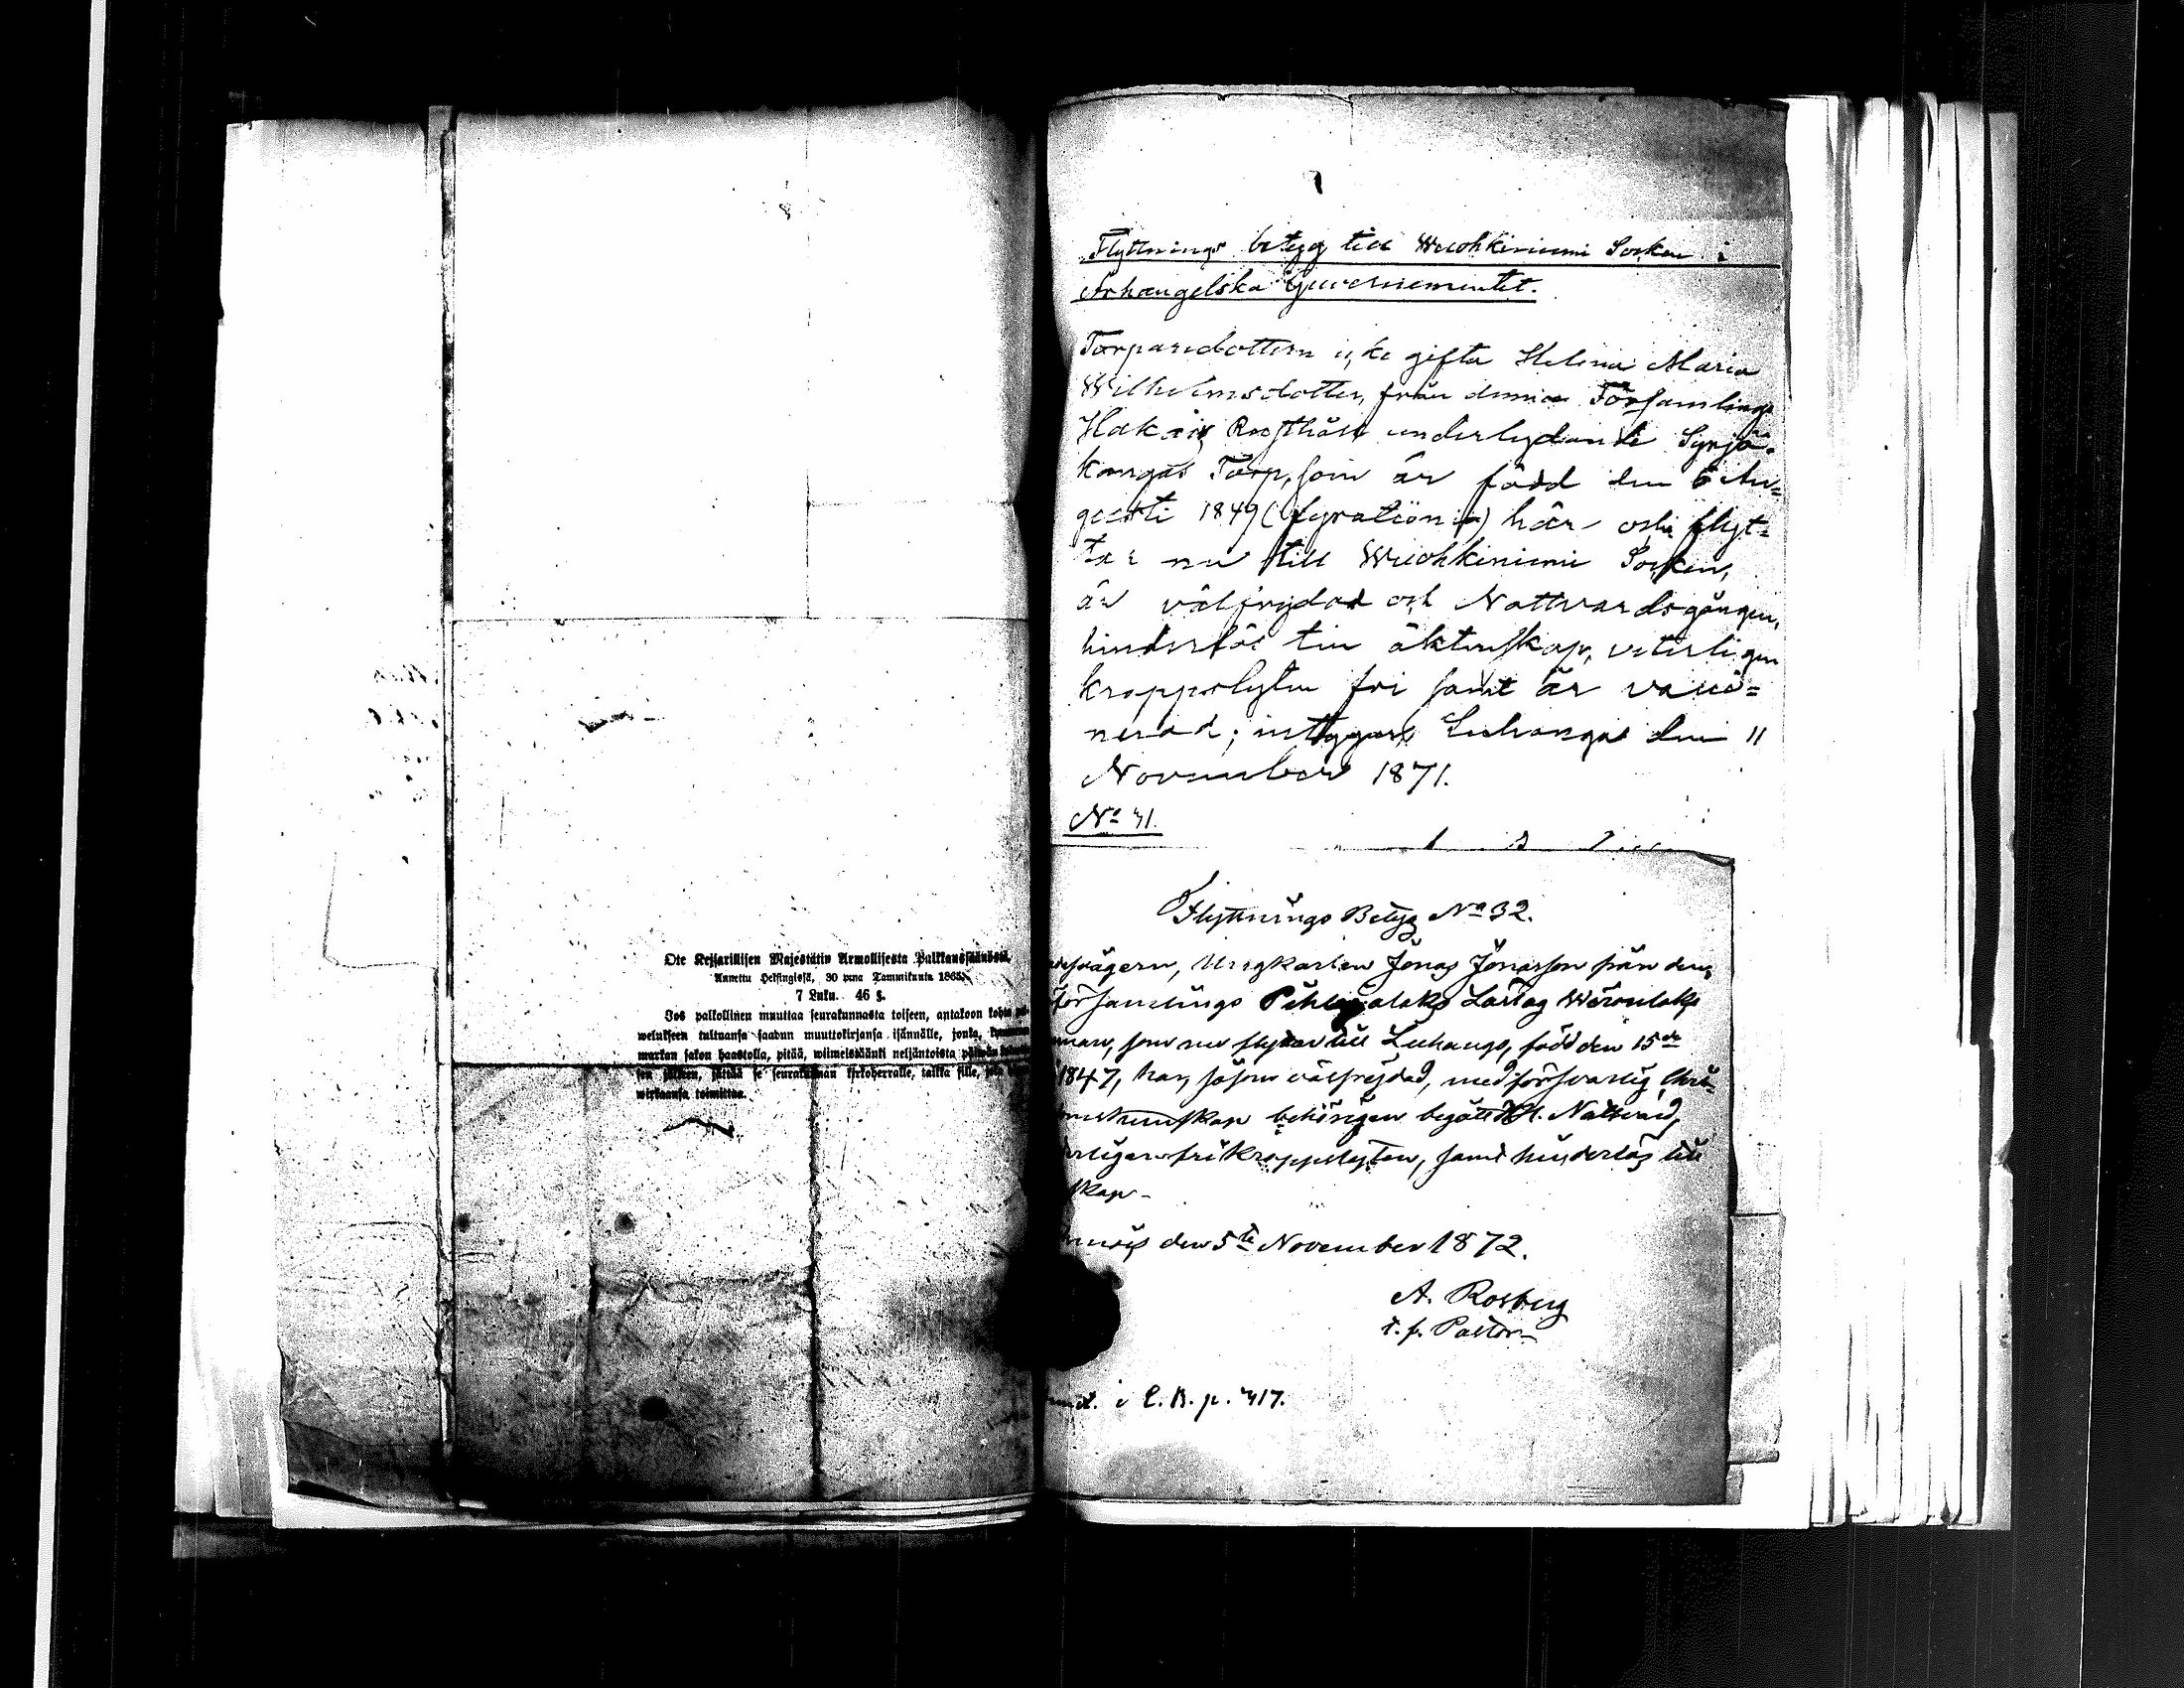 Ote Keisarillisen Majestätin Armollisesta Palkkaussäännöstä,
Annettu Helsingissä, 30 p:nä Tammikuuta 1865.
7 Luku. 46 §.
Jos palkollinen muuttaa seurakunnasta toiseen, antakoon kohta
welukseen tultuansa saadun muuttokirjansa isännälle, jonka,
markan sakon haastolla, pitää, wiimeistäänki neljäntoista päiwän
sen jälkeen, jättää se seurakunnan kirkoherralle, taikka sille, joka
wirkaansa toimittaa.
Flyttnings betyg till Wuohkiniemi Socken i
Arhangelska Guvernementet.
Torparedottern icke gifta Helena Maria
Wilhelmsdotter, från denna Församlings
Rusthåll underlydande Syrjä-
kangas Torp, som är född den 6 Au=
gusti 1849 (fyrationio) här och flyt=
tar nu till Wuohkiniemi Socken,
är välfrejdad och Nattvardsgången,
hinderlös till äktenskap, veterligen
kroppslyten fri samt är vacci=
nerad; intygar Luhanga den 11
November 1871.
No 41.
Flyttnings Betyg No 32.
Ungkarlen Jonas Jonasson från den
församlings Pihlajalaks
som nu flyttar till Luhanga, född den 15de
1847, har, såsom välfrejdad, med försvarlig Chri-
behörigen begått H. H. Nattvard,
fri kroppslyten, samt hinderlös till
skap.
den 5te November 1872.
A. Rosberg
t. f. Pastor
i C. B. p. 417.